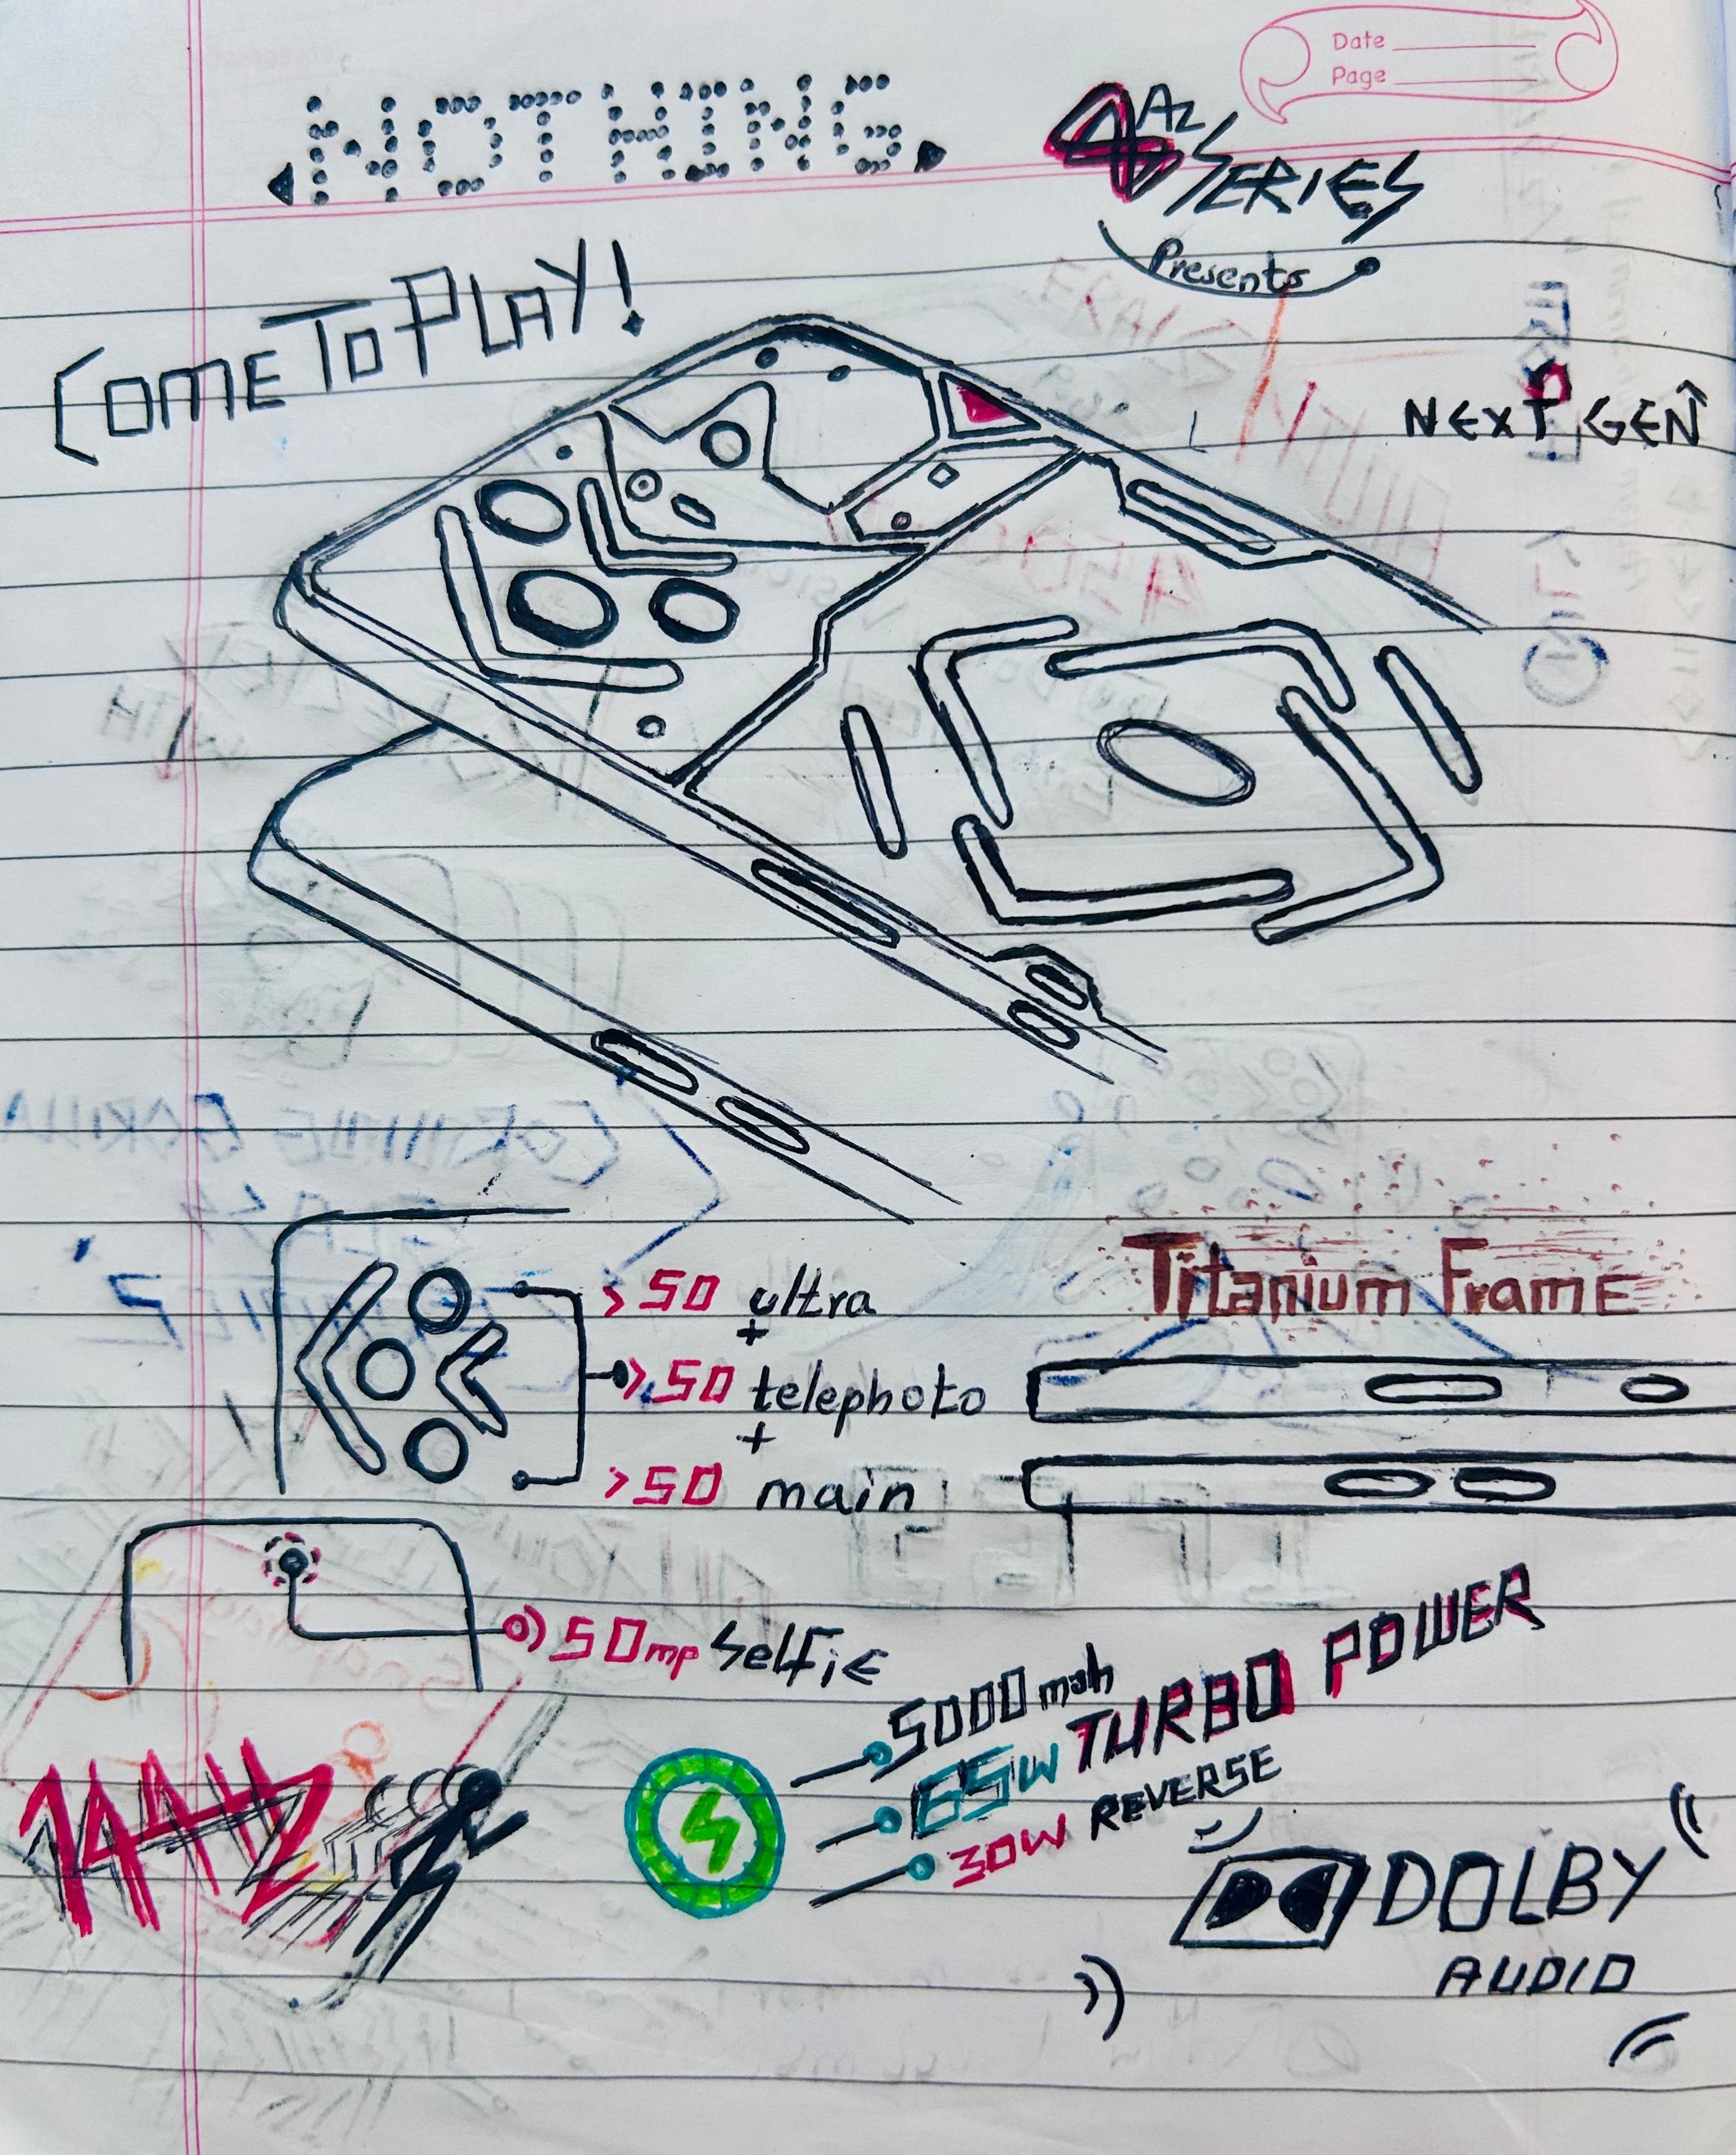 Date
Page
NOTHING
A2
SERIES
Presents
COME TO PLAY!
NEXT GEN
Titanium Frame
>50 ultra
+
>50 telephoto
+
>50 main
50mp Selfie
5000 mah
65W TURBO POWER
30W REVERSE
144Hz
DOLBY
AUDIO